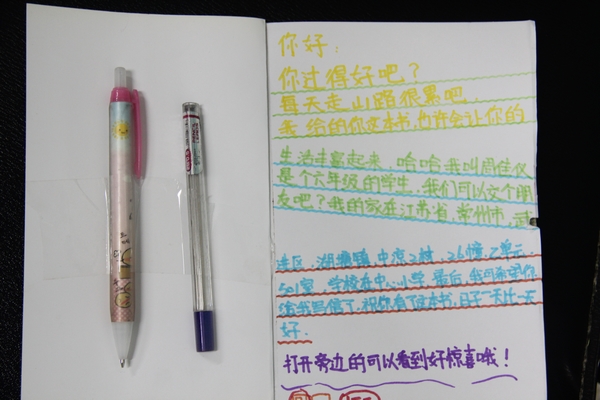 你好：
你过得好吧？
每天走山路很累吧
我给的你这本书,也许会让你的
生活丰富起来,哈哈我叫周佳仪
是个六年级的学生,我们可以交个朋
友吧？我的家在江苏省,常州市,武
进区,湖塘镇,中凉2村,26幢,乙单元
501室,学校在中心小学,最后,我可希望你
给我写信了,祝你看了这本书,日子一天比一天
好.
打开旁边的可以看到好惊喜哦！